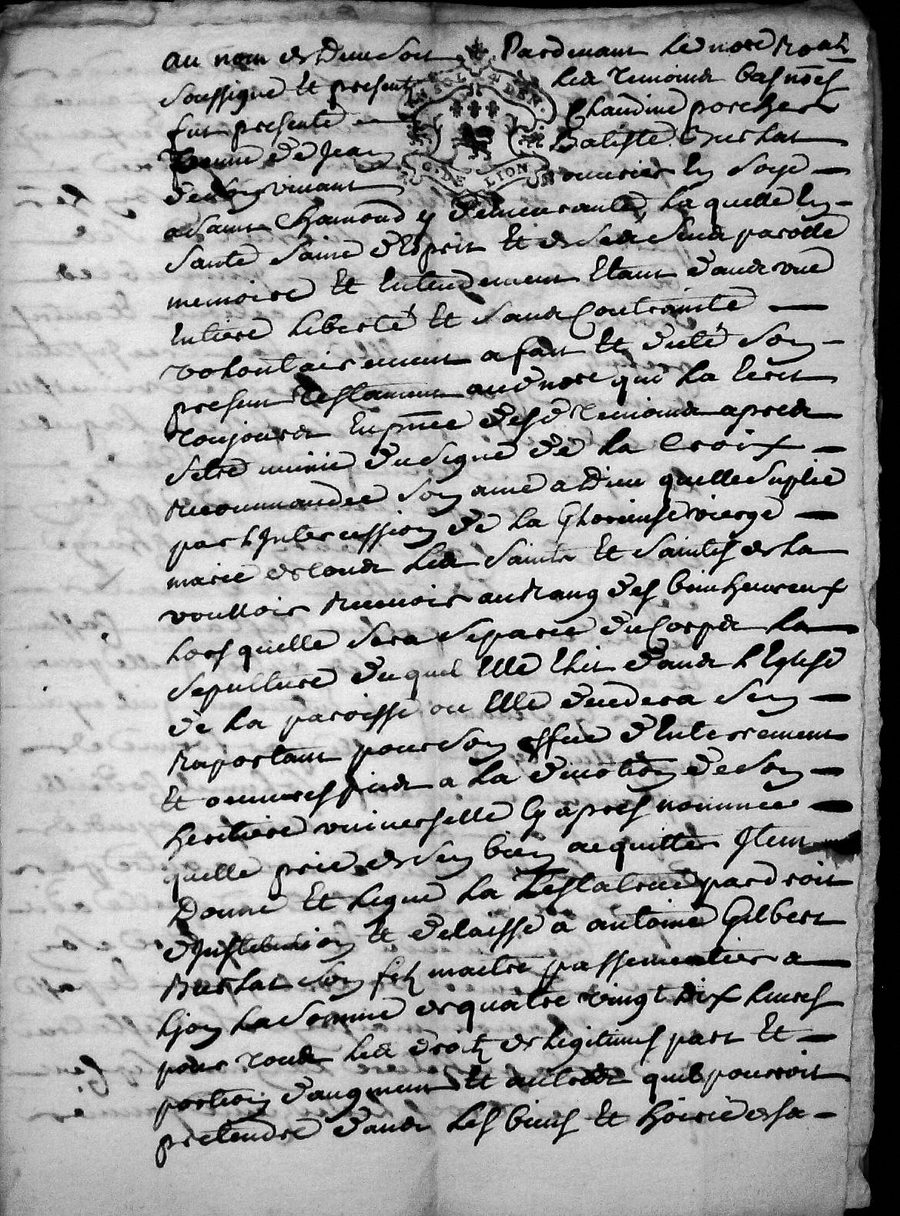 au nom de Dieu soit Pardevant le no.re Roal
soussigné et present les temoins bas nom.és
fut presente Claudine porcher
femme de Jean Batiste Buchat
de son vivant ouvrier en soye
SOLS 4 DEN.
G. DE LION
a Saint Chamond y demeurante, laquelle en
santé saine d'Esprit Et de ses sens parolle
memoire Et Entendement Etant dans une
Entiere liberté Et Sans Contrainte
volontairement a fait Et dicté son
present testament aud nore qui la Ecrit
toujours En pnce desd temoins apres
setre munie du signe de la Croix
Recommandee son ame a Dieu quelle suplie
par l'Intercession de la Glorieuse vierge
marie de tous les Saints Et Saintes de la
voulloir Recevoir au Rang des bienheureux
lors quelle sera separee du Corps la
sepulture du quel Elle Elit dans l'Eglise
de la paroisse ou Elle decedera sen
Raportant pour son office d'Enterrement
Et oeuvres pies a la devotion de son
heritiere universelle Cy apres nommee
quelle prie de sen bien acquitter Item
Donne Et legue la Testatrice par droit
d'Institution Et delaisse a antoine Gilbert
Buchat son fils maitre passementier a
Lyon la Somme de quatre vingt dix livres
pour tous les droits de legitimes part Et
portion d'augment Et autres quil pourroit
pretendre dans les biens Et hoirie de sa